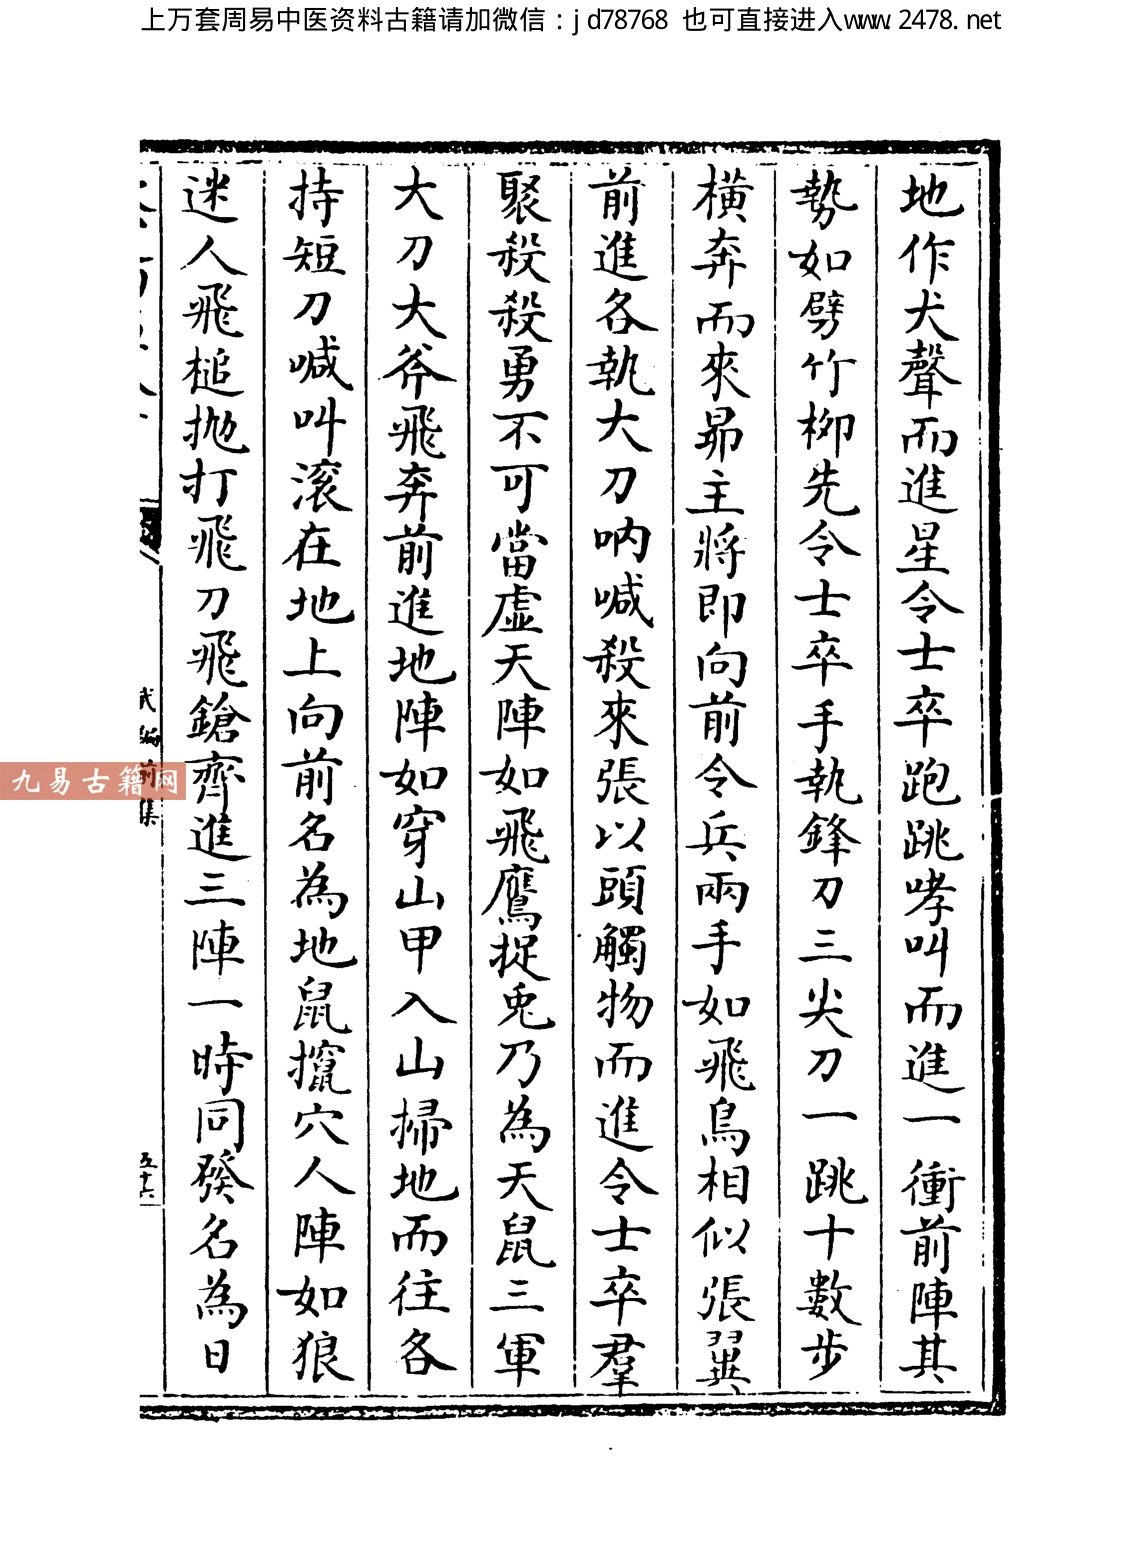 上万套周易中医资料古籍请加微信：jd78768 也可直接进入www.2478.net
地作犬聲而進星令士卒跑跳哮叫而進一衝前陣其
勢如劈竹柳先令士卒手執鋒刀三尖刀一跳十數步
橫奔而來昴主將即向前令兵兩手如飛鳥相似張翼
前進各執大刀吶喊殺來張以頭觸物而進令士卒羣
聚殺殺勇不可當虛天陣如飛鷹捉兎乃為天鼠三軍
大刀大斧飛奔前進地陣如穿山甲入山掃地而往各
持短刀喊叫滚在地上向前名為地鼠攛穴人陣如狼
迷人飛槌拋打飛刀飛鎗齊進三陣一時同發名為日
武編前集
五十六
九易古籍网